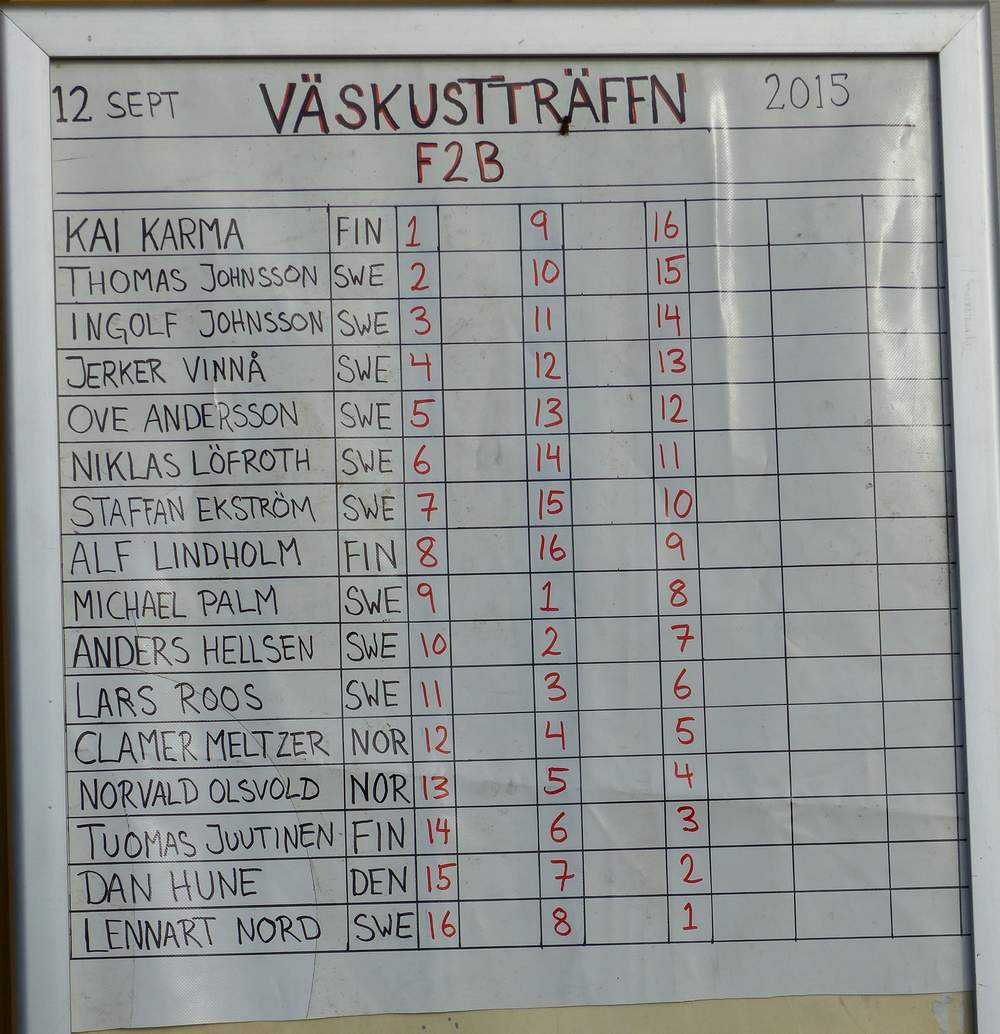 12 SEPT VÄSKUSTTRÄFFN 2015
F2B
KAI KARMA FIN 1 9 16
THOMAS JOHNSSON SWE 2 10 15
INGOLF JOHNSSON SWE 3 11 14
JERKER VINNÅ SWE 4 12 13
OVE ANDERSSON SWE 5 13 12
NIKLAS LÖFROTH SWE 6 14 11
STAFFAN EKSTRÖM SWE 7 15 10
ALF LINDHOLM FIN 8 16 9
MICHAEL PALM SWE 9 1 8
ANDERS HELLSEN SWE 10 2 7
LARS ROOS SWE 11 3 6
CLAMER MELTZER NOR 12 4 5
NORVALD OLSVOLD NOR 13 5 4
TUOMAS JUUTINEN FIN 14 6 3
DAN HUNE DEN 15 7 2
LENNART NORD SWE 16 8 1